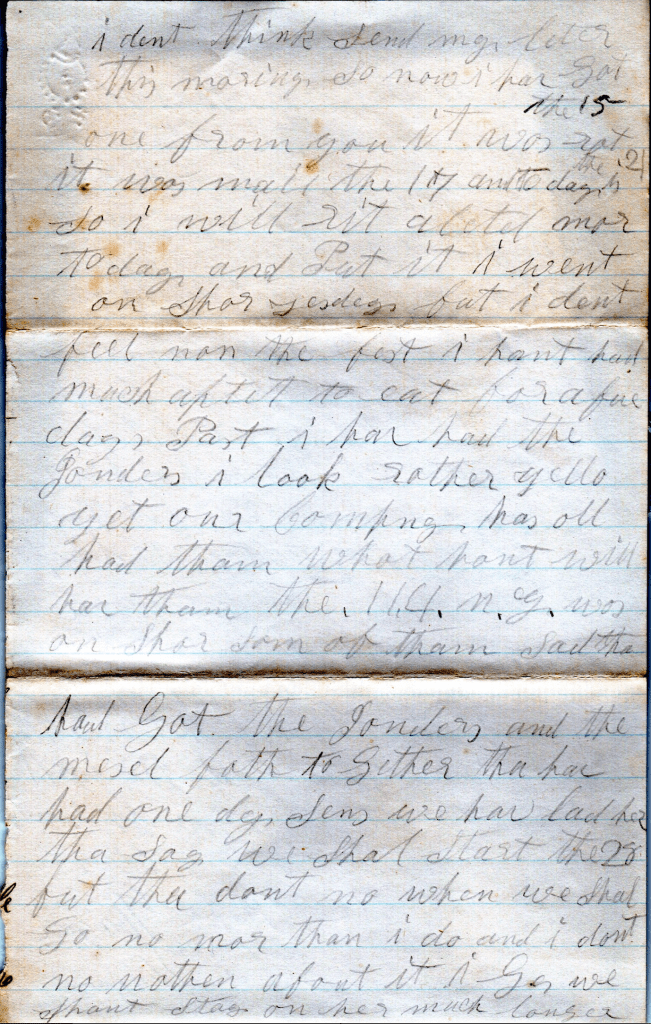 i dont think send my leter
this moring so now i har Got
the 15
one from you it was rot
the 21
it was mald the 17 and to day is
so i will rit a letel mor
to day and Put it i went
on Shor yesday but i dont
feel non the best i hant had
much aptet to eat for a fue
days Past i har had the
Jonders i look rother yello
yet our Compny has oll
had tham what hant will
har tham the 114 n.y. was
on Shor som of tham sad tha
had Got the Jonders and the
mesel both to Gether tha har
had one dy sens we har lad her
tha Say we Shal Start the 28
but tha dont no when we Shal
Go no mor than i do and i dont
no nothen about it i Ges we
Shant Stay on her much longer